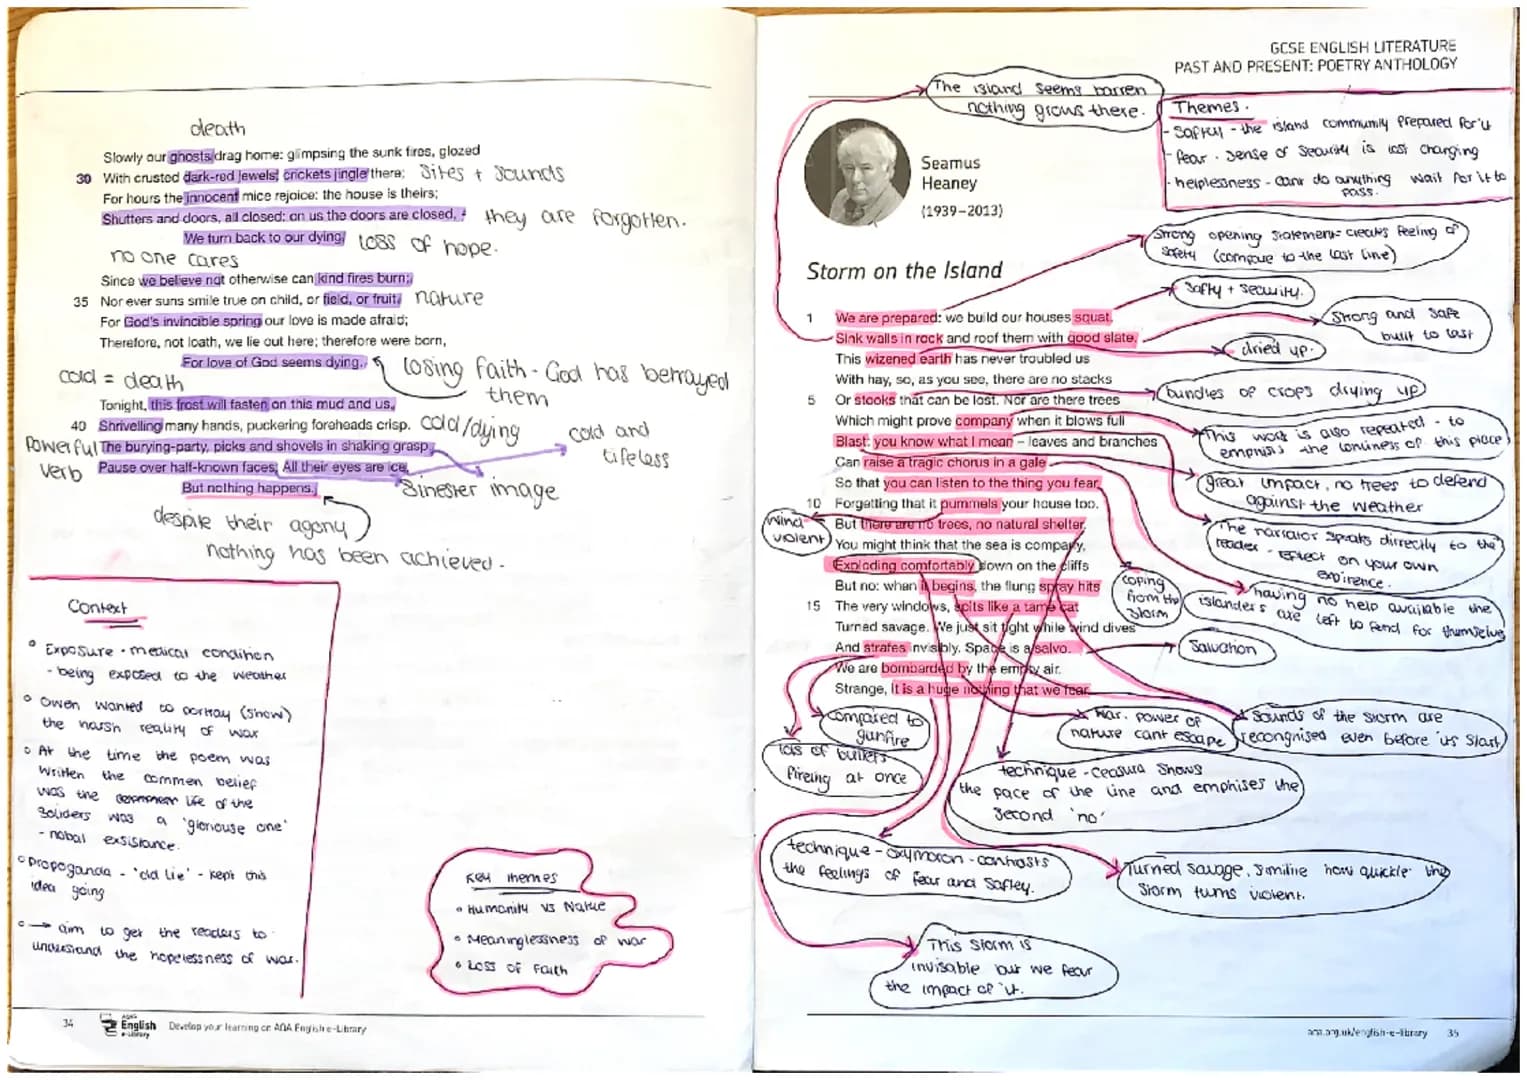 death
Slowly our ghosts drag home: glimpsing the sunk fires, glozed
30 With crusted dark-red jewels; crickets jingle there; Sites + Sounds
For hours the innocent mice rejoice: the house is theirs;
Shutters and doors, all closed: on us the doors are closed, - they are forgotten.
We turn back to our dying. loss of hope.
no one cares
Since we believe not otherwise can kind fires burn;
35 Nor ever suns smile true on child, or field, or fruit. nature
For God's invincible spring our love is made afraid;
Therefore, not loath, we lie out here; therefore were born,
For love of God seems dying.
losing faith - God has betrayed them
cold = death
Tonight, this frost will fasten on this mud and us,
40 Shrivelling many hands, puckering foreheads crisp. cold/dying
Powerful verb
The burying-party, picks and shovels in shaking grasp,
Pause over half-known faces. All their eyes are ice,
cold and lifeless
But nothing happens.
Sinester image
despite their agony
nothing has been achieved.
Context
Exposure - medical condition
- being exposed to the weather
Owen wanted to portray (show)
the harsh reality of war
At the time the poem was
written the commen belief
was the life of the
Soliders was a 'gloriouse one'
- nobal exsistance.
Propoganda - 'old lie' - kept this
idea going
→ aim to get the readers to
understand the hopelessness of war.
Key themes
• Humanity vs Nature
• Meaninglessness of war
• Loss of Faith
34 AQA English e-Library Develop your learning on AQA English e-Library
GCSE ENGLISH LITERATURE
PAST AND PRESENT: POETRY ANTHOLOGY
The island seems barren
nothing grows there.
Themes.
- the island community prepared for it
- fear - sense of security is lost changing
- helplessness - cant do anything wait for it to
pass.
Seamus
Heaney
(1939–2013)
Strong opening statement creats feeling of
safety (compare to the last line)
Storm on the Island
Safty + security.
Strong and safe
built to last
1 We are prepared: we build our houses squat,
Sink walls in rock and roof them with good slate.
dried up.
This wizened earth has never troubled us
With hay, so, as you see, there are no stacks
bundles of crops drying up
5 Or stooks that can be lost. Nor are there trees
Which might prove company when it blows full
This work is also repeated - to
emphisis the lonliness of this place
Blast: you know what I mean – leaves and branches
Can raise a tragic chorus in a gale
So that you can listen to the thing you fear
great impact, no trees to defend
against the weather
10 Forgetting that it pummels your house too.
wind
violent
But there are no trees, no natural shelter.
The narrator speaks dirrectly to the
reader - reflect on your own
expirence.
You might think that the sea is company,
Exploding comfortably down on the cliffs
But no: when it begins, the flung spray hits
coping
from the
storm
having no help available the
islanders are left to fend for themselves
15 The very windows, spits like a tame cat
Turned savage. We just sit tight while wind dives
And strafes invisibly. Space is a salvo.
Salvation
We are bombarded by the empty air.
Strange, it is a huge nothing that we fear.
compared to
gunfire
lots of bullets
fireing at once
War. power of
nature cant escape
Sounds of the storm are
recongnised even before its start
technique - ceasura shows
the pace of the line and emphises the
second 'no'
technique - oxymoron - contrasts
the feelings of fear and saftey.
Turned savage, similie how quickle the
storm turns violent.
This storm is
invisable but we fear
the impact of it.
aqa.org.uk/english-e-library 35